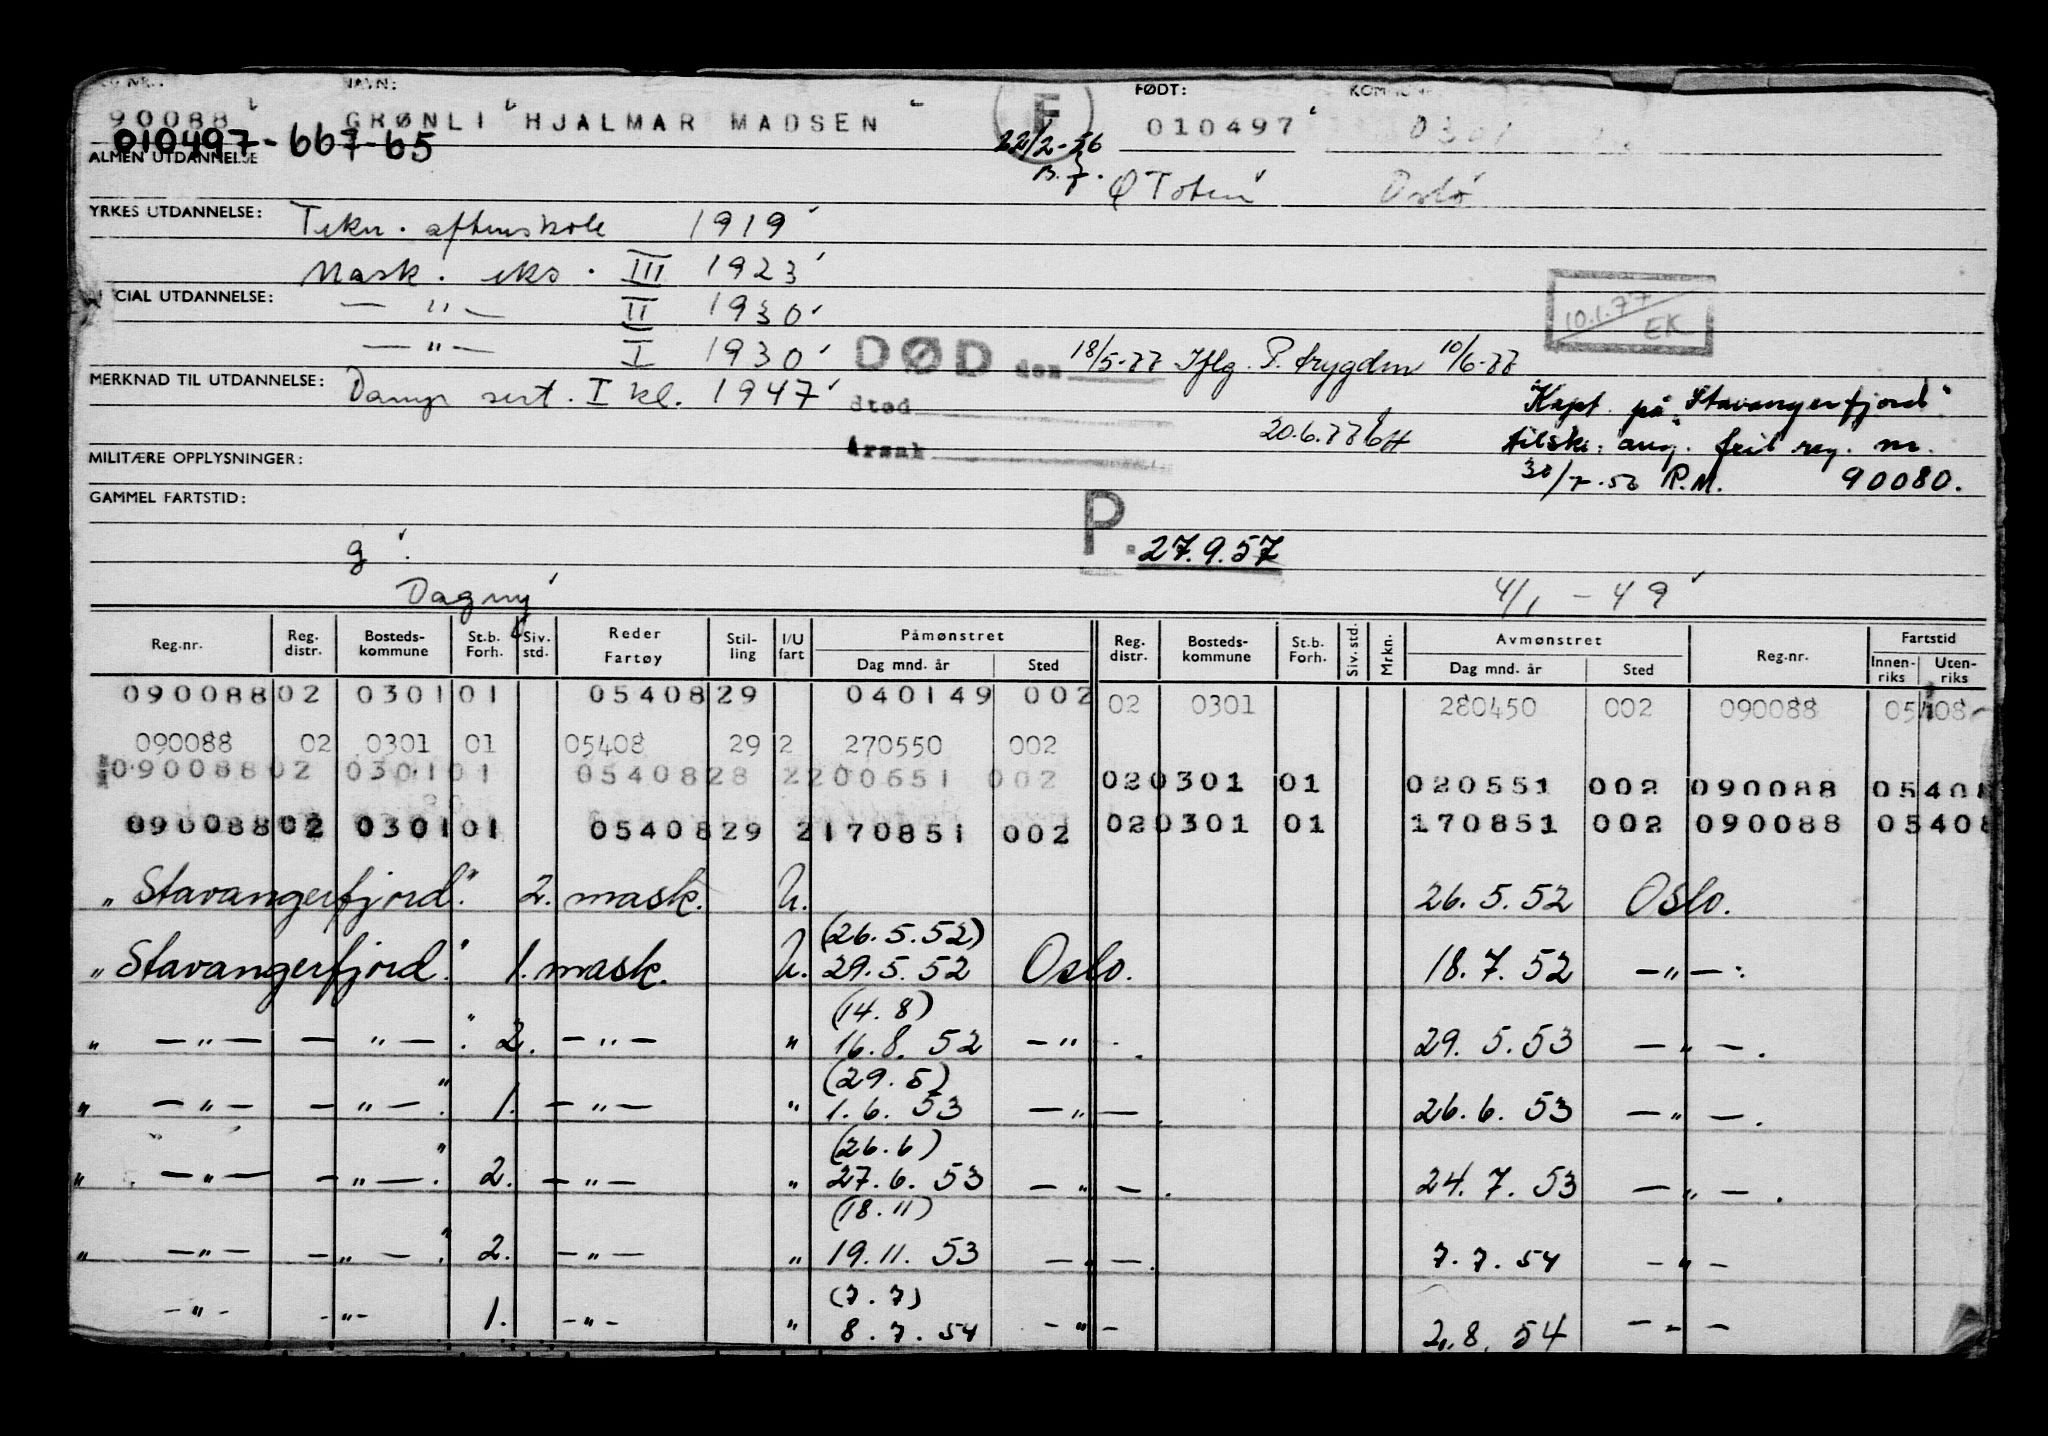 NAVN: FØDT:
90088 GRØNLI HJALMAR MADSEN F 010497 0301
010497-667-65 22/2-56
ALMEN UTDANNELSE Ø Toten Oslo
YRKES UTDANNELSE: Tekn. aftenskole 1919
Mask. eks. III 1923
CIAL UTDANNELSE: — " — II 1930
— " — I 1930
10.1.77 EK
DØD den 18/5-77 Iflg. P. trygden 10/6-77
MERKNAD TIL UTDANNELSE: Damp sert. I kl. 1947
Sted
Årsak 20.6.77
Kapt. på "Stavangerfjord"
tilskr. ang. feil reg. nr.
R.M. 90080.
MILITÆRE OPPLYSNINGER:
GAMMEL FARTSTID:
P. 27.9.57
g
Dagny 4/1 - 49
Reg.nr. Reg. distr. Bosteds-kommune St.b. Forh. Siv. std. Reder Fartøy Stil-ling I/U fart Påmønstret Dag mnd. år Sted Reg. distr. Bosteds-kommune St.b. Forh. Siv. std. Mrkn. Avmønstret Dag mnd. år Sted Reg.nr. Fartstid Innen-riks Uten-riks
090088 02 0301 01 05408 29 040149 002 02 0301 280450 002 090088 05408
090088 02 0301 01 05408 29 2 270550 002
090088 02 0301 01 05408 28 2 200651 002 02 0301 01 020551 002 090088 05408
090088 02 0301 01 05408 29 2 170851 002 02 0301 01 170851 002 090088 05408
"Stavangerfjord". 2. mask. U. 26.5.52 Oslo.
(26.5.52)
"Stavangerfjord". 1. mask. U. 29.5.52 Oslo. 18.7.52 — " —.
(14.8)
" — " — — " — ". 2. — " — " 16.8.52 — " — . 29.5.53 — " — .
(29.5)
" — " — — " — ". 1. — " — " 1.6.53 — " — . 26.6.53 — " — .
(26.6)
" — " — — " — ". 2. — " — " 27.6.53 — " — . 24.7.53 — " — .
(18.11)
" — " — — " — ". 2. — " — " 19.11.53 — " — . 7.7.54 — " —
(7.7)
— " — — " — 1. — " — " 8.7.54 — " — 2.8.54 — " —